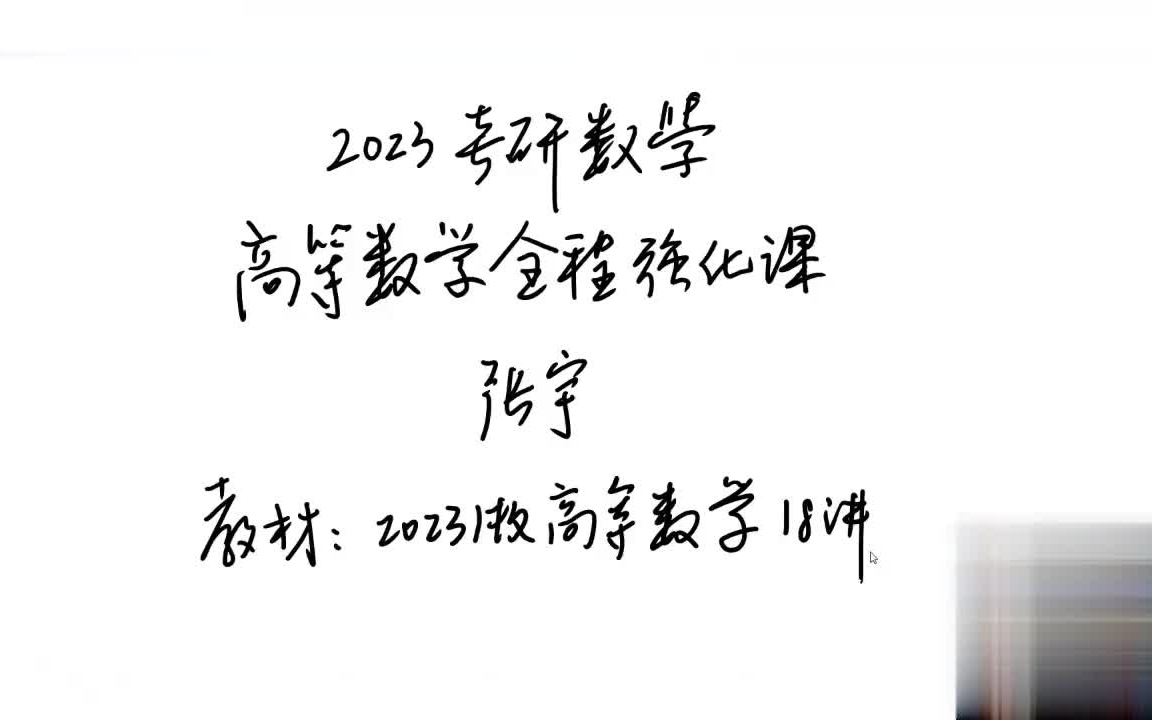 2023考研数学
高等数学全程强化课
张宇
教材：2023版高等数学18讲